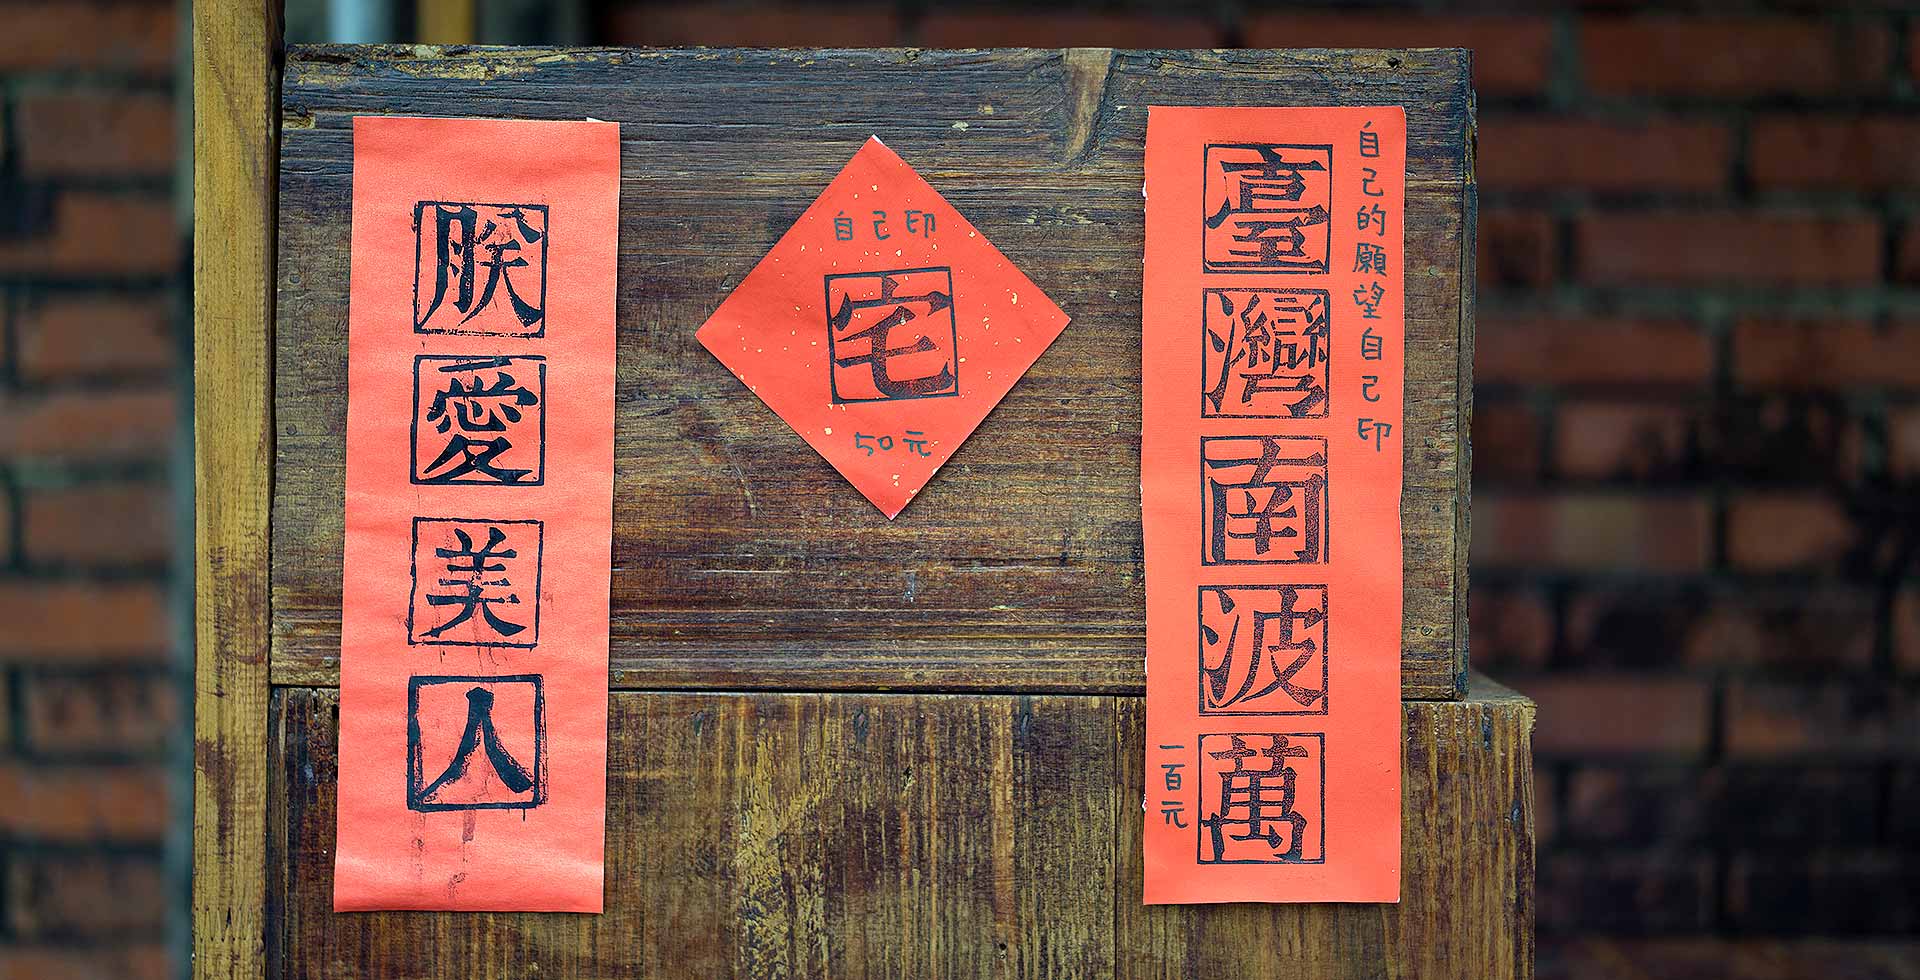 朕愛美人
自己印
宅
50元
自己的願望自己印
臺灣南波萬
一百元